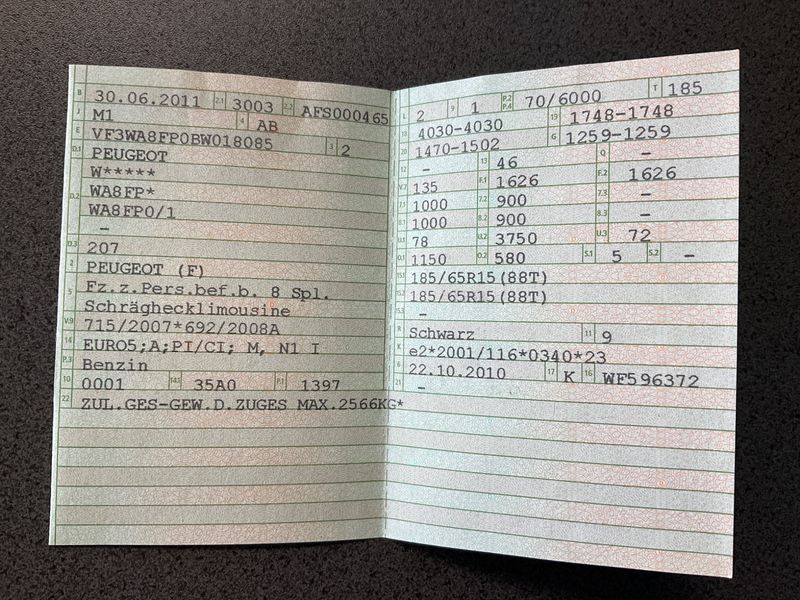 B 30.06.2011 2.1 3003 2.2 AFS000465
J M1 4 AB
E VF3WA8FP0BW018085 3 2
D.1 PEUGEOT
W*****
D.2 WA8FP*
WA8FP0/1
–
D.3 207
2 PEUGEOT (F)
5 Fz.z.Pers.bef.b. 8 Spl.
Schräghecklimousine
V.9 715/2007*692/2008A
14 EURO5;A;PI/CI; M, N1 I
P.3 Benzin
10 0001 14.1 35A0 P.1 1397
22 ZUL.GES-GEW.D.ZUGES MAX.2566KG*
L 2 9 1 P.2 P.4 70/6000 T 185
18 4030-4030 19 1748-1748
20 1470-1502 G 1259-1259
12 – 13 46 Q –
V.7 135 F.1 1626 F.2 1626
7.1 1000 7.2 900 7.3 –
8.1 1000 8.2 900 8.3 –
U.1 78 U.2 3750 U.3 72
O.1 1150 O.2 580 S.1 5 S.2 –
15.1 185/65R15(88T)
15.2 185/65R15(88T)
15.3 –
R Schwarz 11 9
K e2*2001/116*0340*23
6 22.10.2010 17 K 16 WF596372
21 –